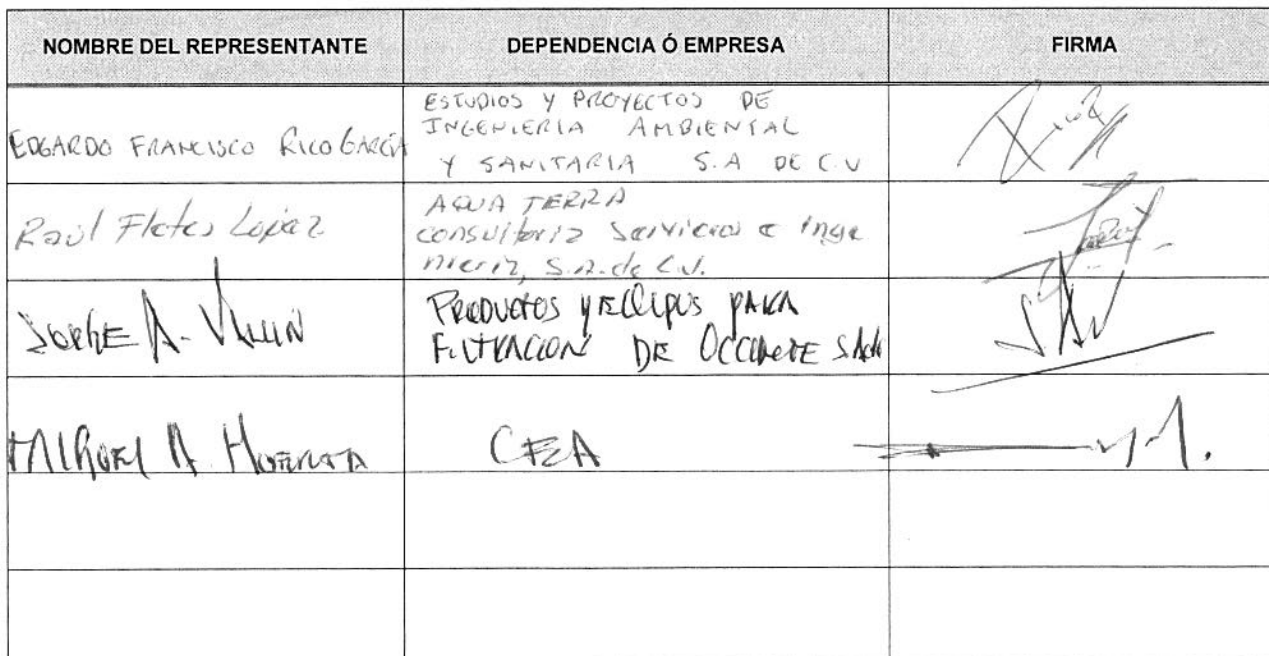 NOMBRE DEL REPRESENTANTE DEPENDENCIA Ó EMPRESA FIRMA
EDGARDO FRANCISCO RICO GARCÍA
ESTUDIOS Y PROYECTOS DE
INGENIERIA AMBIENTAL
Y SANITARIA S.A DE C.V
Rico
Raúl Fletes López
AQUA TERRA
consultoria Servicios e Inge
nieria, S.A. de C.V.
JORGE A.
PRODUCTOS Y EQUIPOS PARA
FILTRACION DE OCCIDENTE
MIGUEL A. HUERTA
CEA